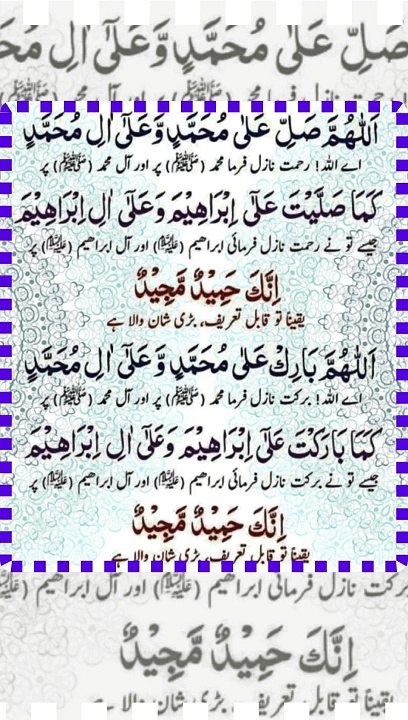 صَلِّ عَلٰی مُحَمَّدٍ وَّعَلٰٓی اٰلِ
اَللّٰهُمَّ صَلِّ عَلٰی مُحَمَّدٍ وَّعَلٰٓی اٰلِ مُحَمَّدٍ
اے اللہ! رحمت نازل فرما محمد (ﷺ) پر اور آل محمد (ﷺ) پر
کَمَا صَلَّیْتَ عَلٰٓی اِبْرَاهِیْمَ وَعَلٰٓی اٰلِ اِبْرَاهِیْمَ
جیسے تو نے رحمت نازل فرمائی ابراھیم (علیہ السلام) اور آل ابراھیم (علیہ السلام) پر
اِنَّكَ حَمِیْدٌ مَّجِیْدٌ
یقیناً تو قابل تعریف، بڑی شان والا ہے
اَللّٰهُمَّ بَارِكْ عَلٰی مُحَمَّدٍ وَّ عَلٰٓی اٰلِ مُحَمَّدٍ
اے اللہ! برکت نازل فرما محمد (ﷺ) پر اور آل محمد (ﷺ) پر
کَمَا بَارَکْتَ عَلٰٓی اِبْرَاهِیْمَ وَعَلٰٓی اٰلِ اِبْرَاهِیْمَ
جیسے تو نے برکت نازل فرمائی ابراھیم (علیہ السلام) اور آل ابراھیم (علیہ السلام) پر
اِنَّكَ حَمِیْدٌ مَّجِیْدٌ
یقیناً تو قابل تعریف، بڑی شان والا ہے
برکت نازل فرمائی ابراھیم (علیہ السلام) اور آل ابراھیم
اِنَّكَ حَمِیْدٌ مَّجِیْدٌ
یقیناً تو قابل تعریف، بڑی شان والا ہے